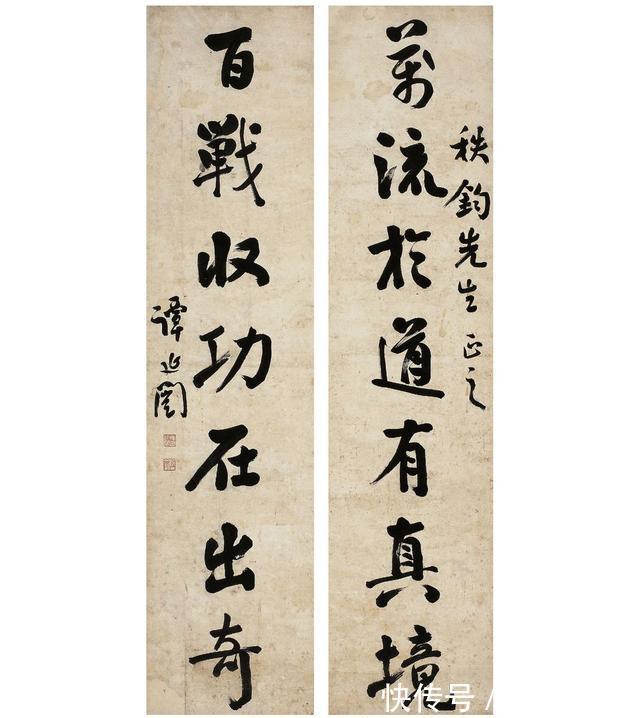 秩鈞先生正之
萬流於道有真境
百戰收功在出奇
譚延闓
快传号 /